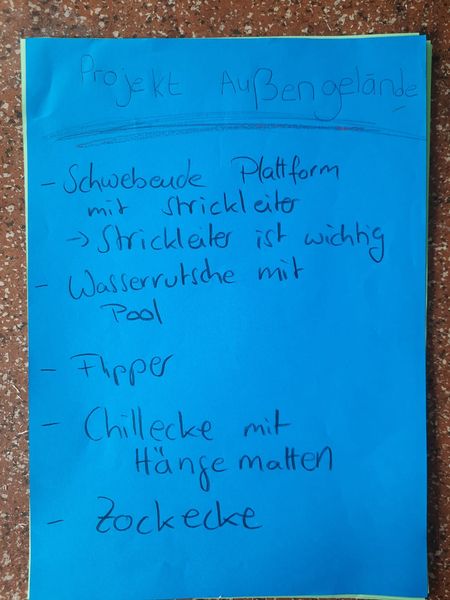 Projekt Außengelände
- Schwebende Plattform
mit Strickleiter
→ Strickleiter ist wichtig
- Wasserrutsche mit
Pool
- Flipper
- Chillecke mit
Hängematten
- Zockecke